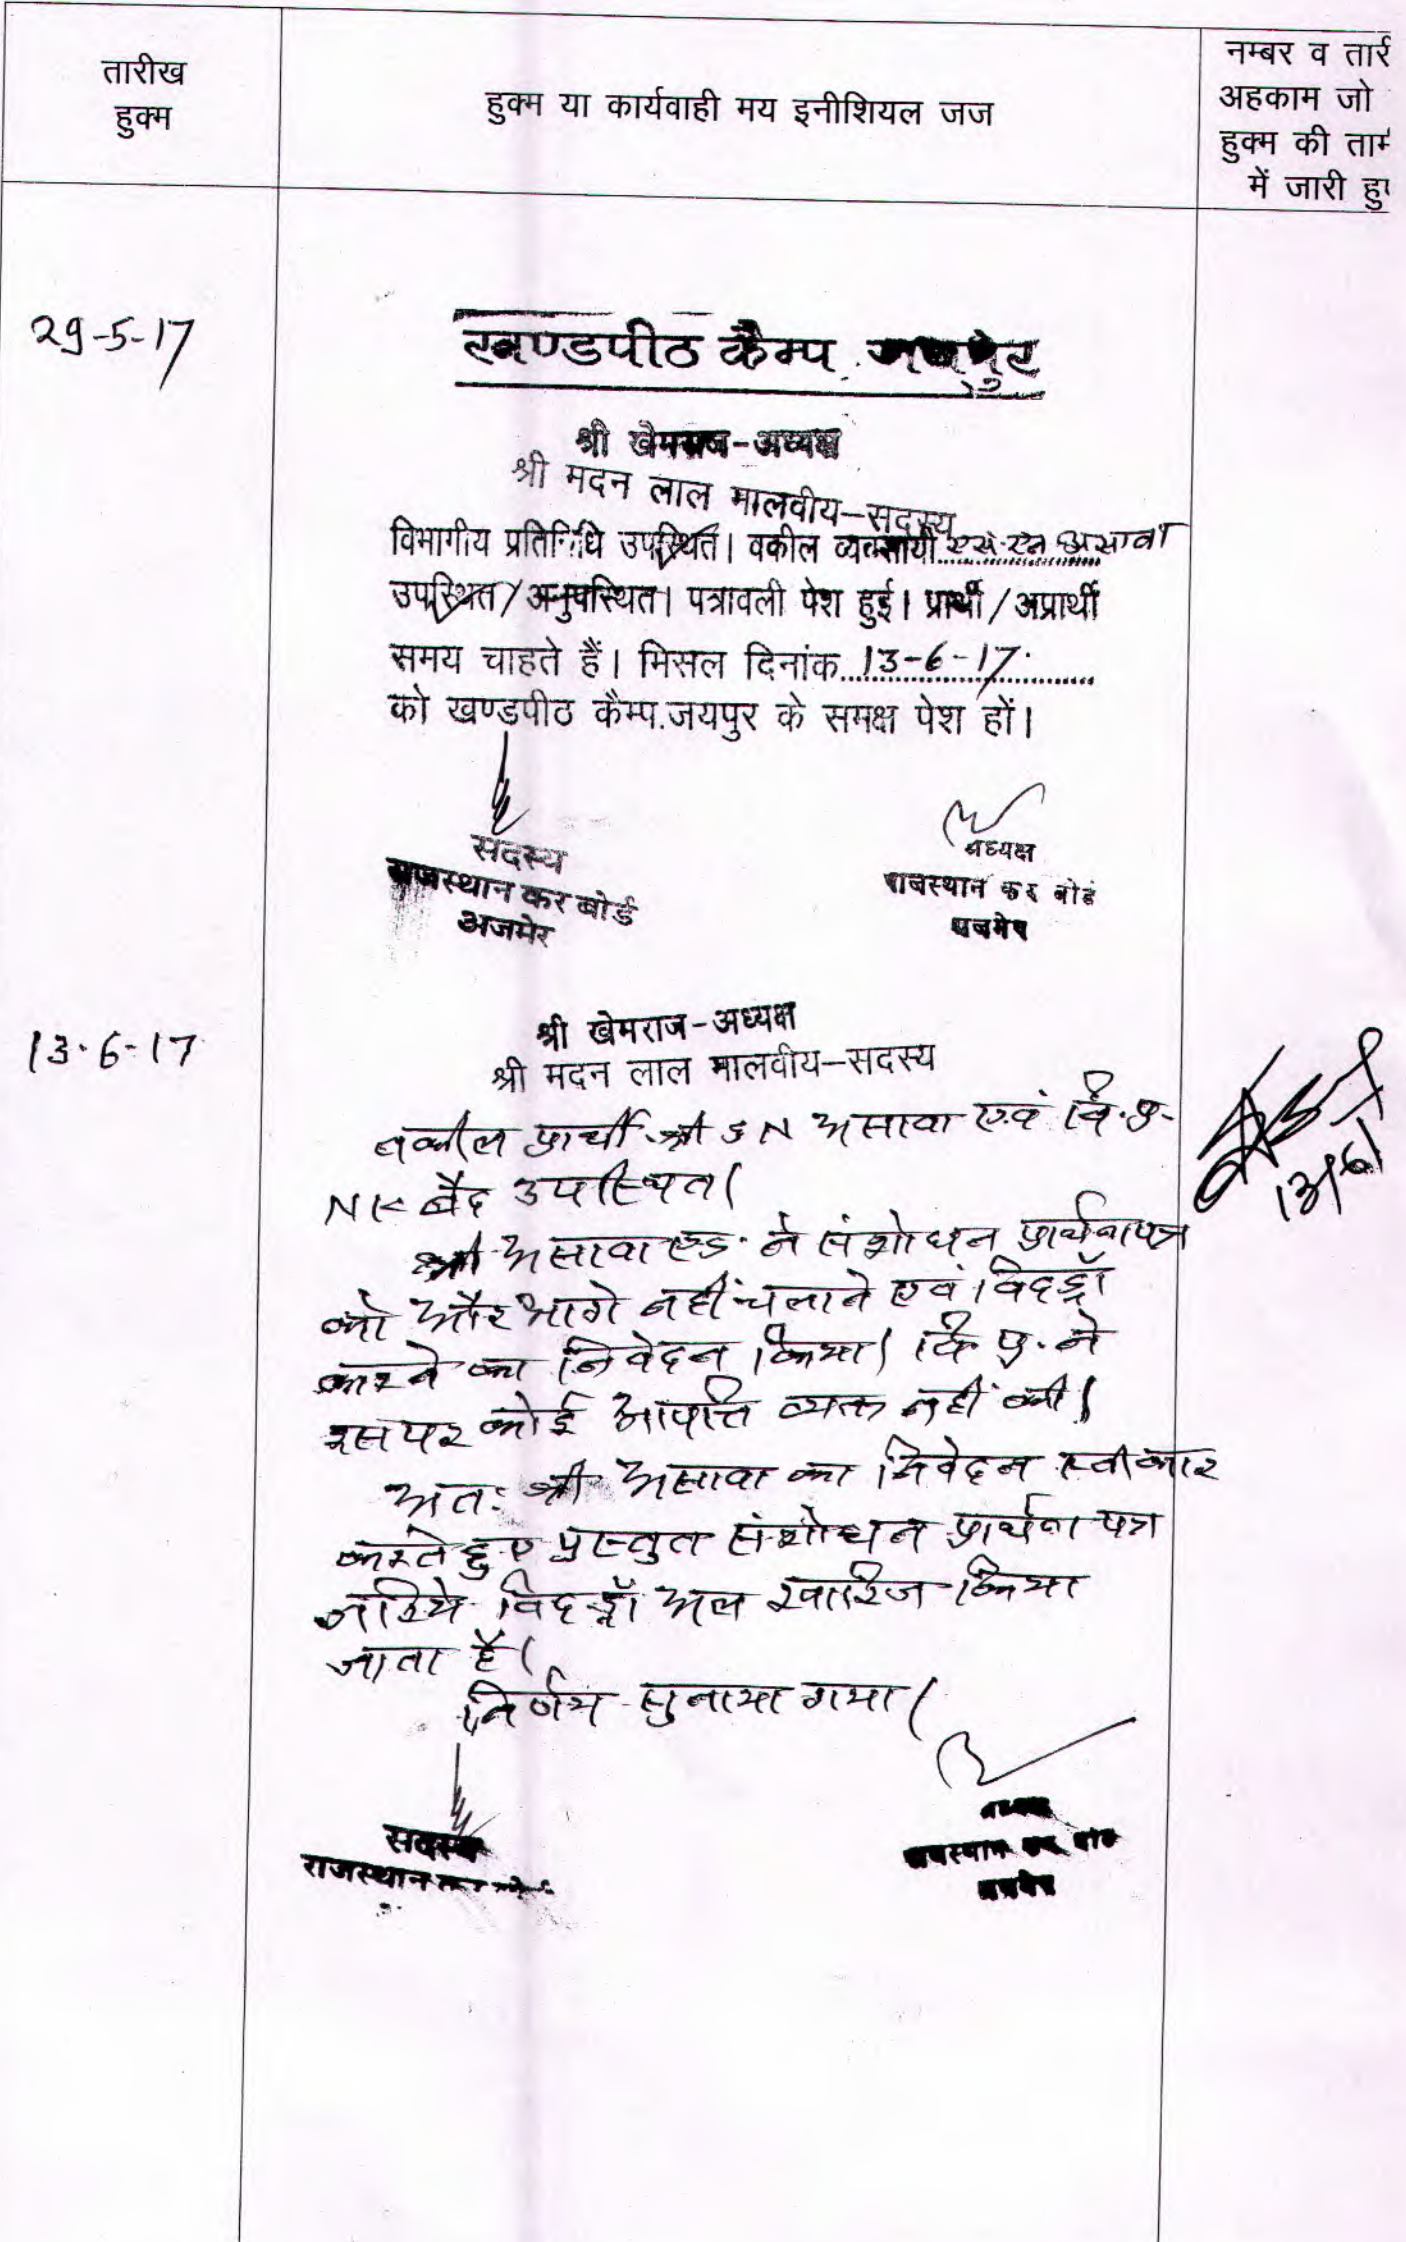 तारीख
हुक्म
हुक्म या कार्यवाही मय इनीशियल जज
नम्बर व तारी
अहकाम जो
हुक्म की ताम
में जारी हु
29-5-17
खण्डपीठ कैम्प जयपुर
श्री खेमराज-अध्यक्ष
श्री मदन लाल मालवीय-सदस्य
विभागीय प्रतिनिधि उपस्थित। वकील व्यवसायी एस. एन असावा
उपस्थित/अनुपस्थित। पत्रावली पेश हुई। प्रार्थी/अप्रार्थी
समय चाहते हैं। मिसल दिनांक 13-6-17
को खण्डपीठ कैम्प.जयपुर के समक्ष पेश हों।
सदस्य
राजस्थान कर बोर्ड
अजमेर
अध्यक्ष
राजस्थान कर बोर्ड
अजमेर
13-6-17
श्री खेमराज-अध्यक्ष
श्री मदन लाल मालवीय-सदस्य
वकील प्रार्थी श्री S N असावा एवं वि.प्र.
NK बैद उपस्थित।
श्री असावा एड. ने संशोधन प्रार्थनापत्र
को और आगे नहीं चलाने एवं विदड्रॉ
करने का निवेदन किया। वि.प्र. ने
इस पर कोई आपत्ति व्यक्त नहीं की।
अतः श्री असावा का निवेदन स्वीकार
करते हुए प्रस्तुत संशोधन प्रार्थना पत्र
जरिये विदड्रॉ अल खारिज किया
जाता है।
निर्णय सुनाया गया।
13/6/
सदस्य
राजस्थान कर बोर्ड
अध्यक्ष
राजस्थान कर बोर्ड
अजमेर